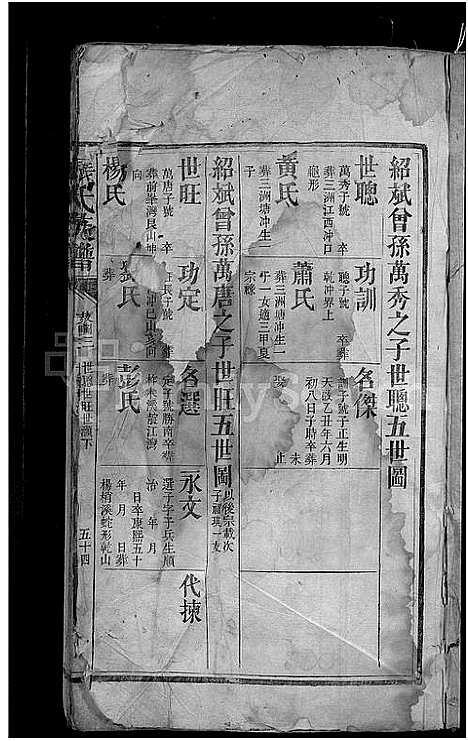 紹斌曾孫萬秀之子世聰五世圖
世聰
萬秀子號 卒
葬三洲江西冲口
龜形
黃氏
葬三洲塘冲生一
子
功訓
聰子號 卒葬
乾冲界上
蕭氏
葬三洲塘冲生一
子一女適三甲夏
宗祿
名傑
訓子號子正生明
天啟乙丑年六月
初八日子時卒葬
未
止
紹斌曾孫萬唐之子世旺五世圖
以後宗載次
世旺
萬唐子號 卒
葬前峯灣艮山坤
向
楊氏
功定
旺長子號
氏
葬
名選
定子號勝南卒葬
彭氏
葬
永文
選子字子兵生順
治 年 月
日卒康熙五十
年 月 日葬
楊梢溪蛇形乾山
代揀
世聰世旺世 下
五十四